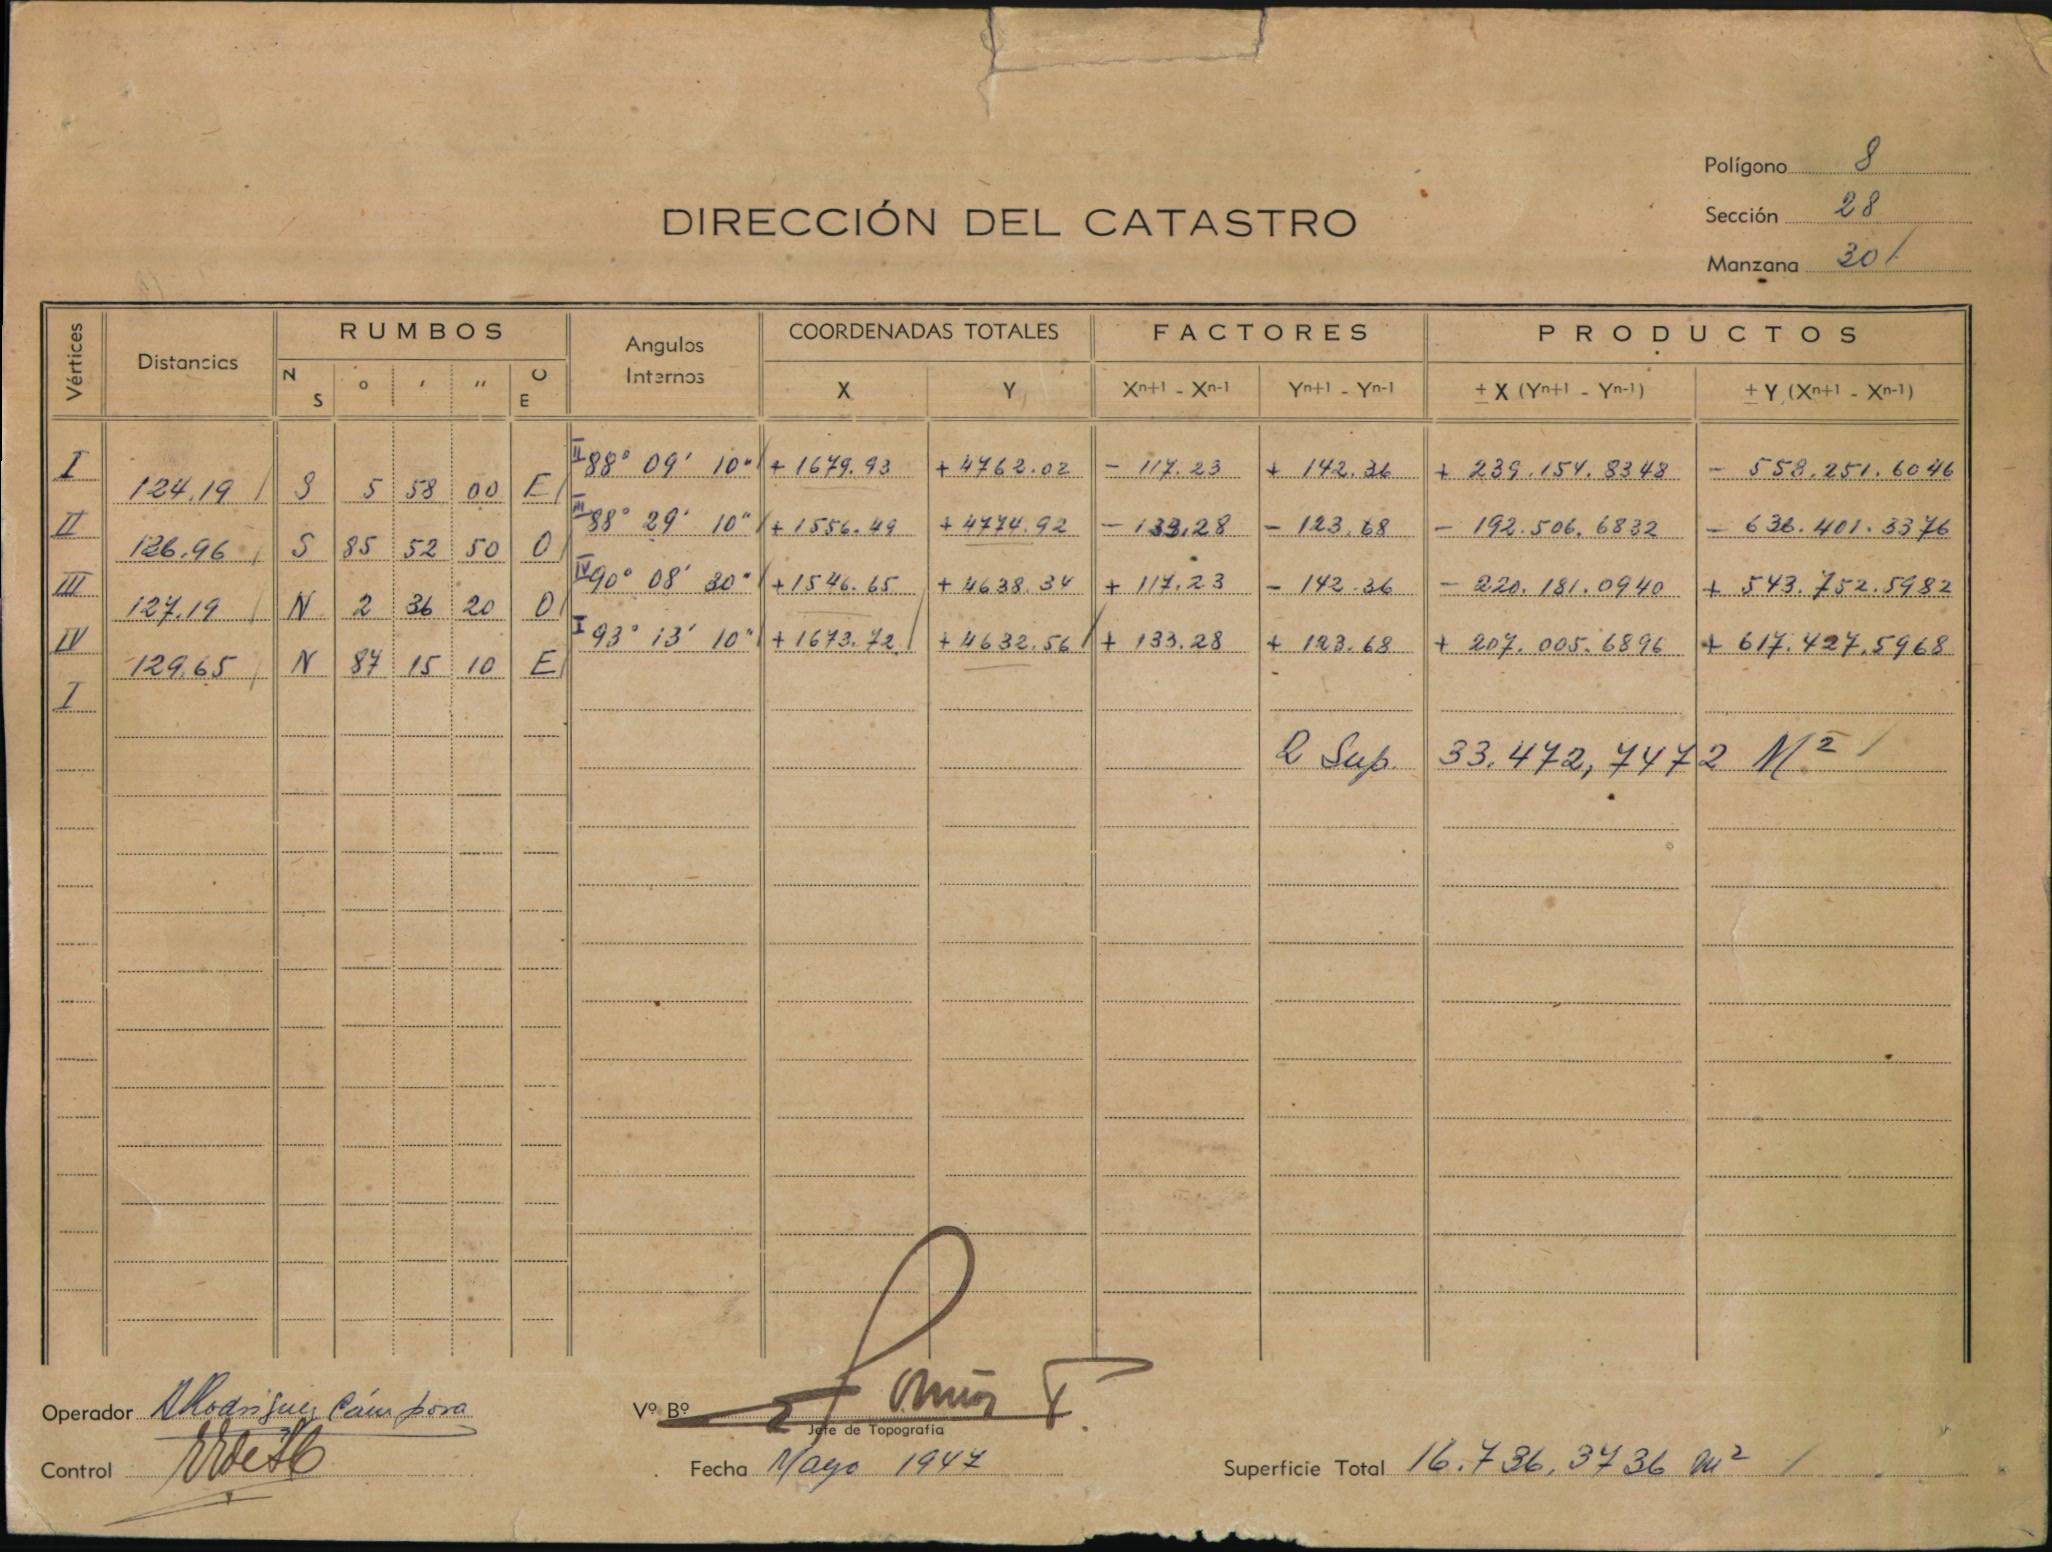 Polígono 8
Sección 28
Manzana 301
DIRECCIÓN DEL CATASTRO
Vértices Distancias RUMBOS Angulos Internos COORDENADAS TOTALES FACTORES PRODUCTOS
N S ° ' " O E X Y Xn+1 - Xn-1 Yn+1 - Yn-1 ± X (Yn+1 - Yn-1) ± Y (Xn+1 - Xn-1)
I II 88° 09' 10" + 1679.93 + 4762.02 - 117.23 + 142.36 + 239.154.8348 - 558.251.6046
124.19 S 5 58 00 E
II III 88° 29' 10" + 1556.49 + 4774.92 - 133,28 - 123.68 - 192.506.6832 - 636.401.3376
126.96 S 85 52 50 O
III IV 90° 08' 30" + 1546.65 + 4638.34 + 117.23 - 142.36 - 220.181.0940 + 543.752.5982
127.19 N 2 36 20 O
IV I 93° 13' 10" + 1673.72 + 4632.56 + 133.28 + 123.68 + 207.005.6896 + 617.427.5968
129.65 N 87 15 10 E
I
2 Sup. 33.472,7472 M²
Operador Rodriguez Cámpora
Vº Bº
Jefe de Topografía
Control
Fecha Mayo 1947
Superficie Total 16.736,3736 m²